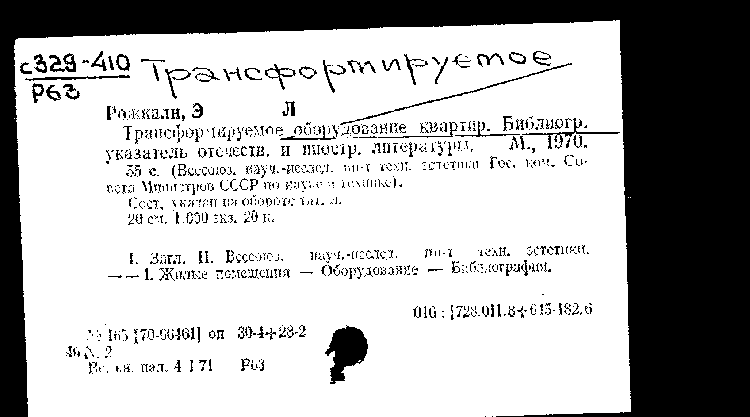 с329-410 Трансформируемое
Р63
Рожкали, Э Л
Трансформируемое оборудование квартир. Библиогр.
указатель отечеств. и иностр. литературы. М., 1970.
55 с. (Всесоюз. науч.-исслед. ин-т техн. эстетики Гос. ком. Со-
вета Министров СССР по науке и технике).
Сост. указан на обороте тит. л.
20 см. 1.000 экз. 20 к.
I. Загл. II. Всесоюз. науч.-исслед. ин-т техн. эстетики.
— — 1. Жилые помещения — Оборудование — Библиография.
016 : [728.011.8+645-182.6
№ 165 [70-66461] оп 30-4+28-2
46 N. 2
Вс. кн. пал. 4 I 71 Р63